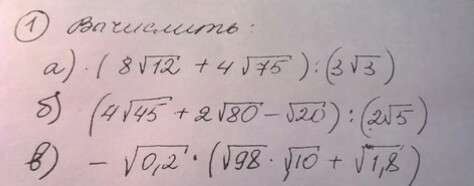 ① Вычислить:
а) · (8√12 + 4√75) : (3√3)
б) (4√45 + 2√80 - √20) : (2√5)
в) - √0,2 · (√98 · √10 + √1,8)